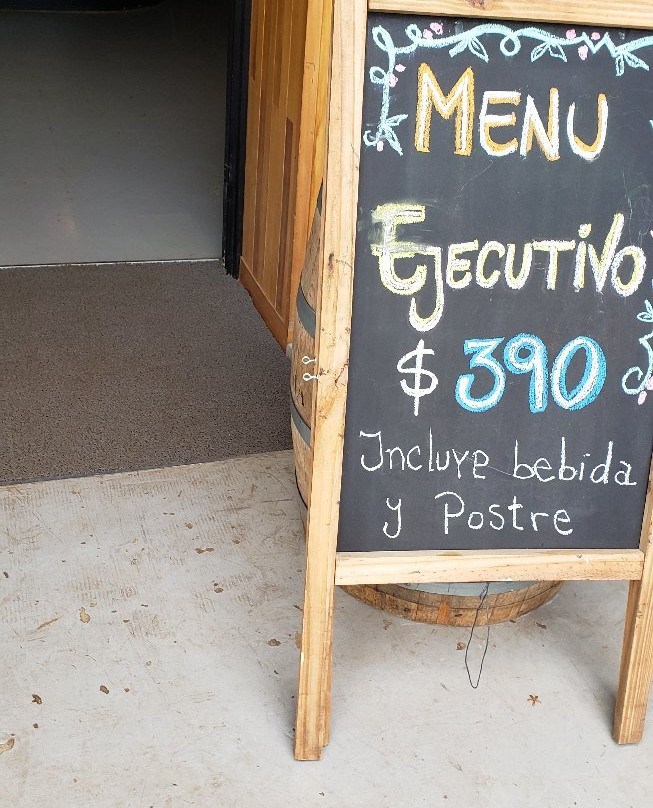 MENU
EJECUTIVO
$ 390
Incluye bebida
y Postre